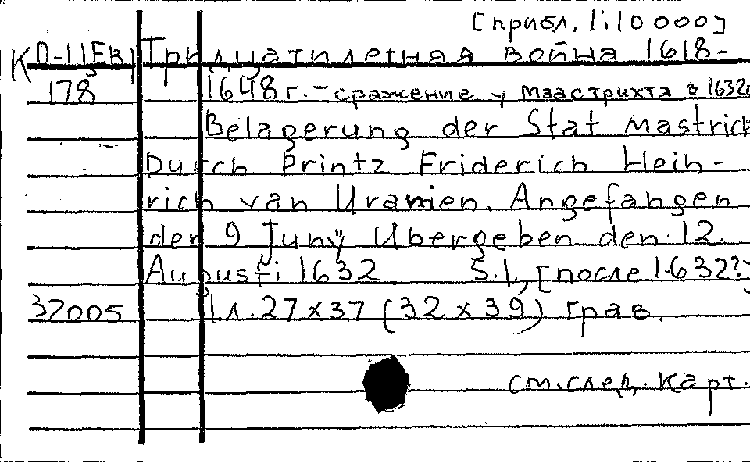 [прибл. 1:10 000]
К 0-11ЕВ) Тридцатилетняя война 1618-
178 1648 г. - сражение у Маастрихта в 1632г
Belagerung der Stat Mastrich
Durch Printz Friderich Hein-
rich van Uranien. Angefangen
den 9 Junÿ Ubergeben den 12.
Augusti 1632 S.l, [после 1632?]
32005 1 л. 27 x 37 (32 x 39) грав.
см. след. карт.